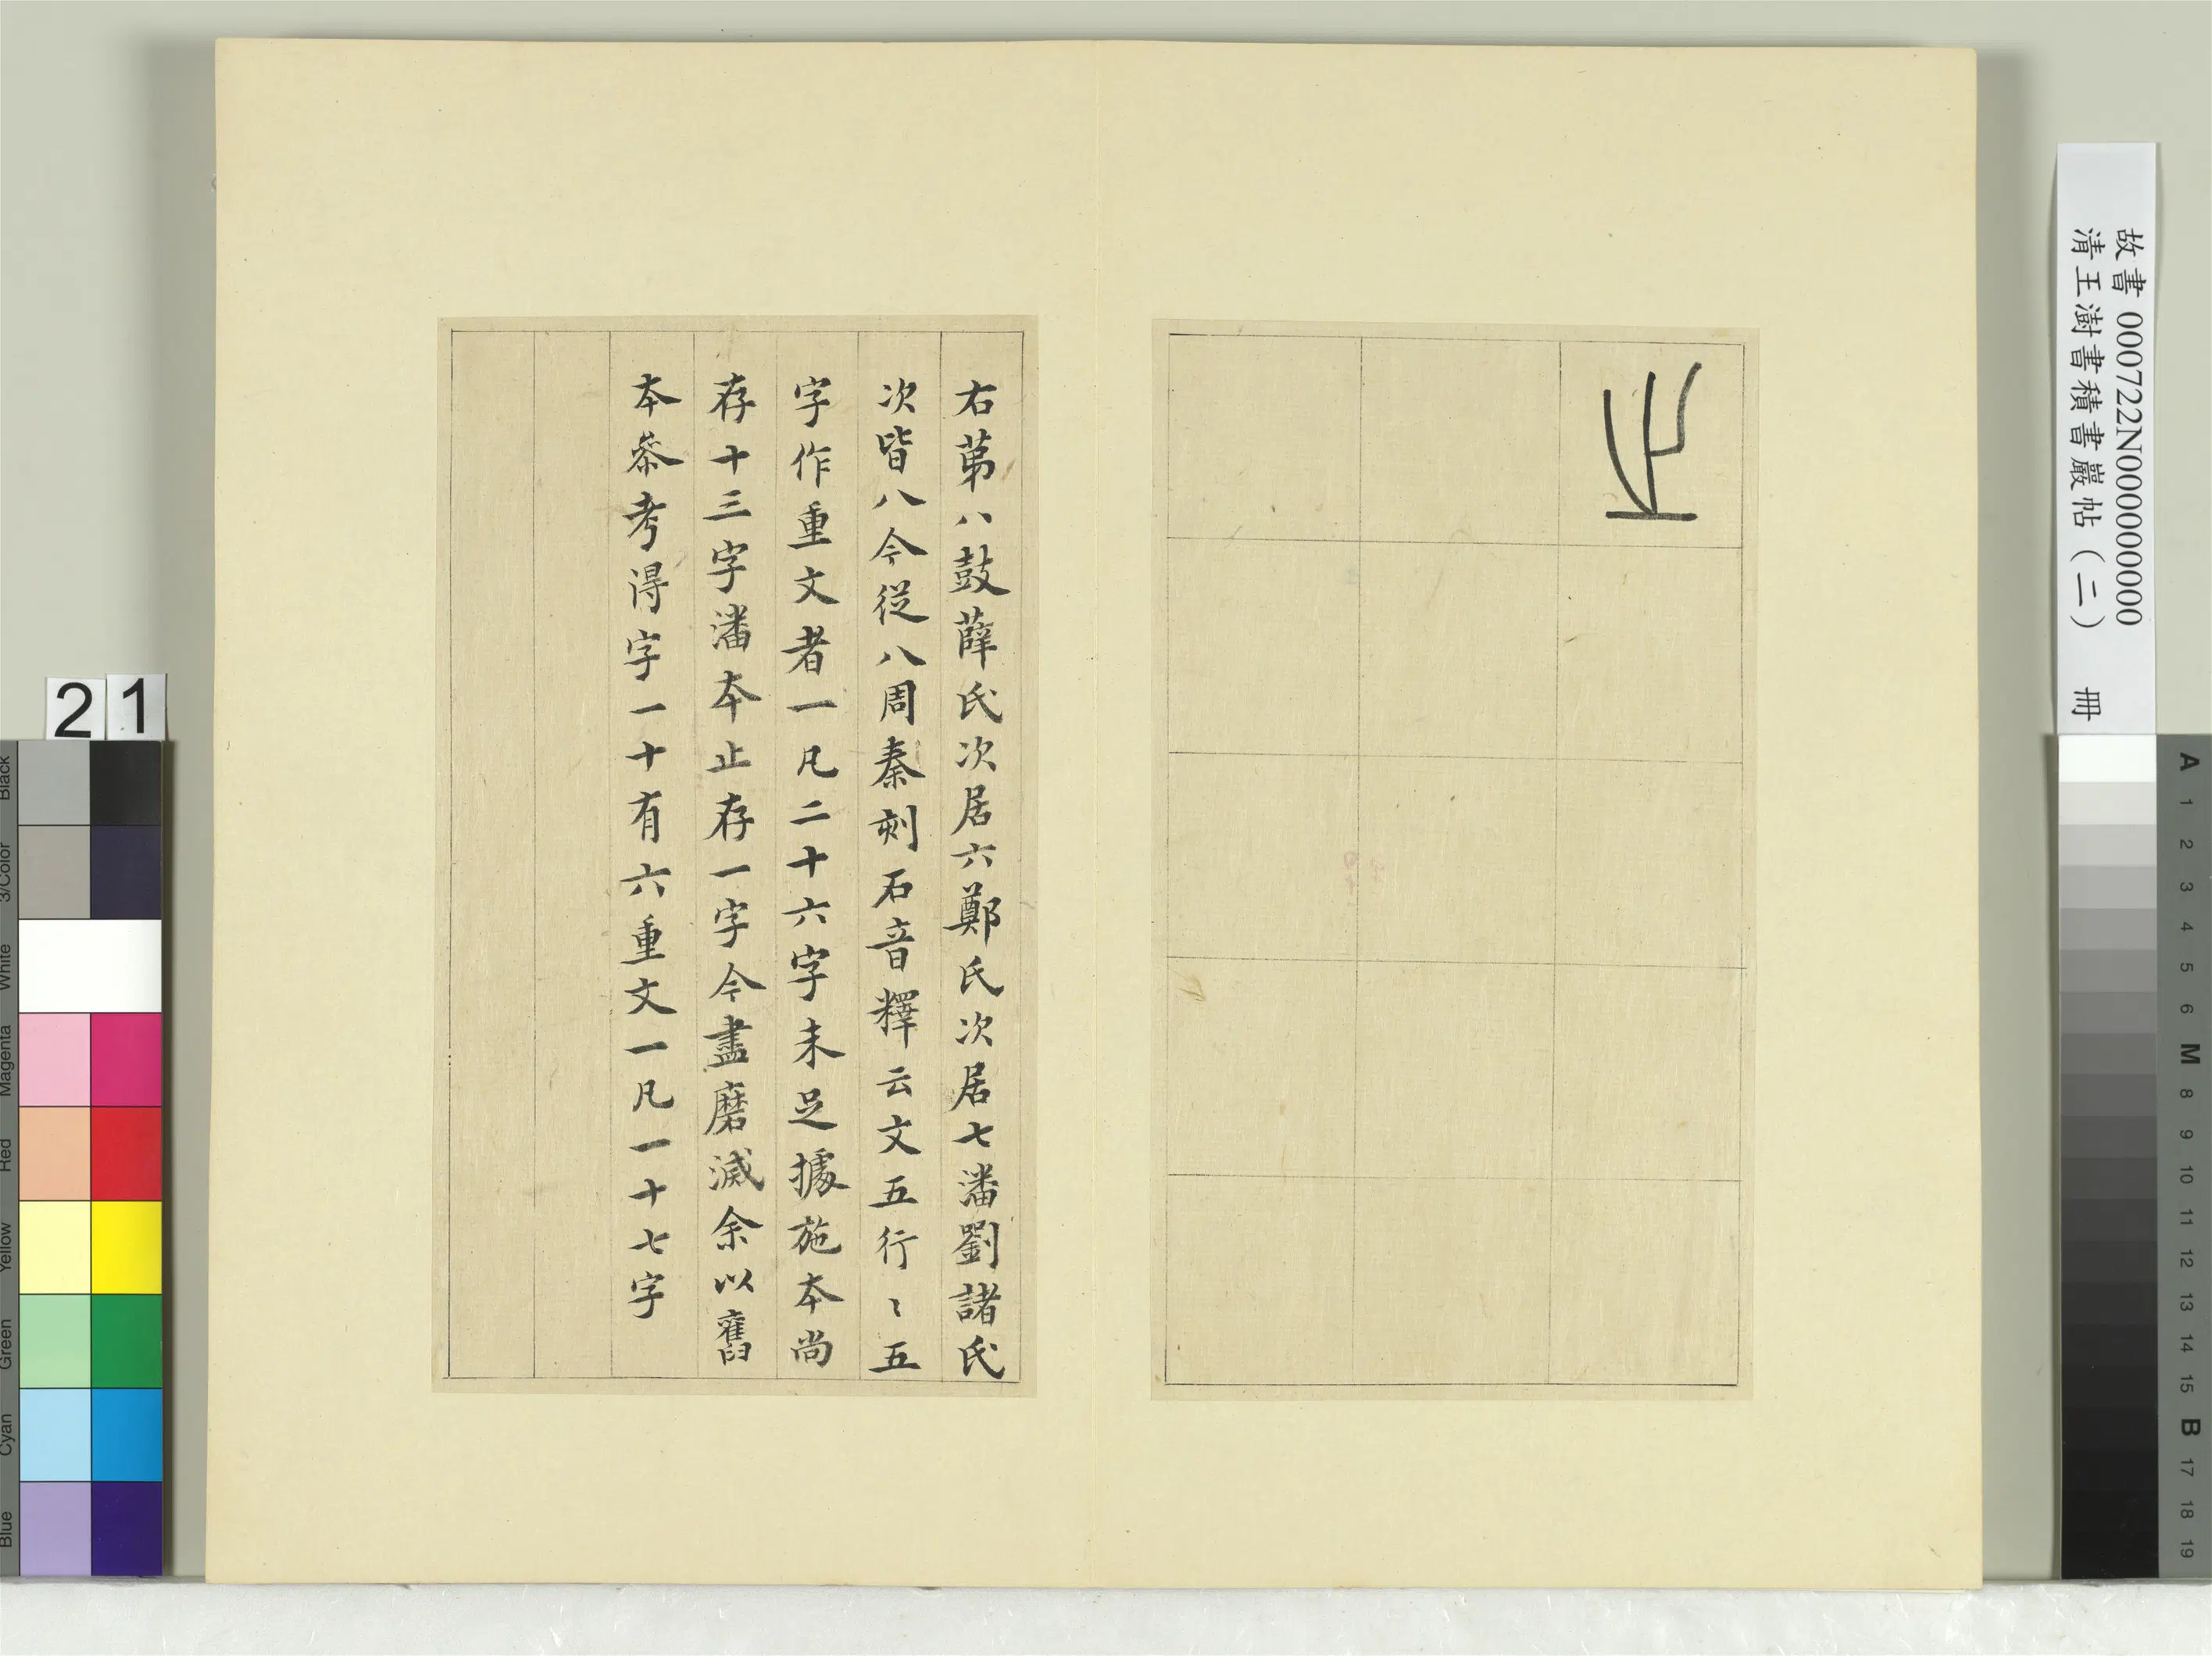 故書 000722N000000000
清王澍書積書巖帖（二） 冊
止
右苐八鼓薛氏次居六鄭氏次居七潘劉諸氏
次皆八今從八周秦刻石音釋云文五行〻五
字作重文者一凡二十六字未足據施本尚
存十三字潘本止存一字今盡磨滅余以舊
本叅考得字一十有六重文一凡一十七字
21
Black
3/Color
White
Magenta
Red
Yellow
Green
Cyan
Blue
A
1
2
3
4
5
6
M
8
9
10
11
12
13
14
15
B
17
18
19